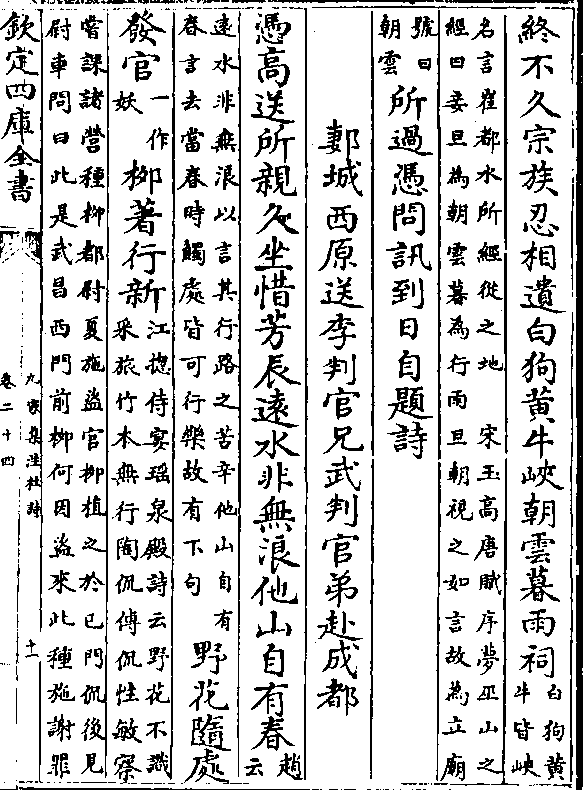 終不久宗族忍相遺白狗黄牛峽朝雲暮雨祠白狗黄
牛皆峽
名言崔都水所經從之地　宋玉高唐賦序夢巫山之
經曰妾旦為朝雲暮為行雨旦朝視之如言故為立廟
號曰
朝雲
所過憑問訊到日自題詩
郪城西原送李判官兄武判官弟赴成都
憑高送所親久坐惜芳辰遠水非無浪他山自有春趙
云
遠水非無浪以言其行路之苦辛他山自有
春言去當春時觸處皆可行樂故有下句
野花隨處
發官
一作
妖
柳著行新
江揔侍宴瑶泉殿詩云野花不識
采旅竹本無行陶侃傳侃性敏察
嘗課諸營種柳都尉夏施盜官柳植之於已門侃後見
尉車問曰此是武昌西門前柳何因盜來此種施謝罪
欽定四庫全書
九家集注杜詩
卷二十四
十一